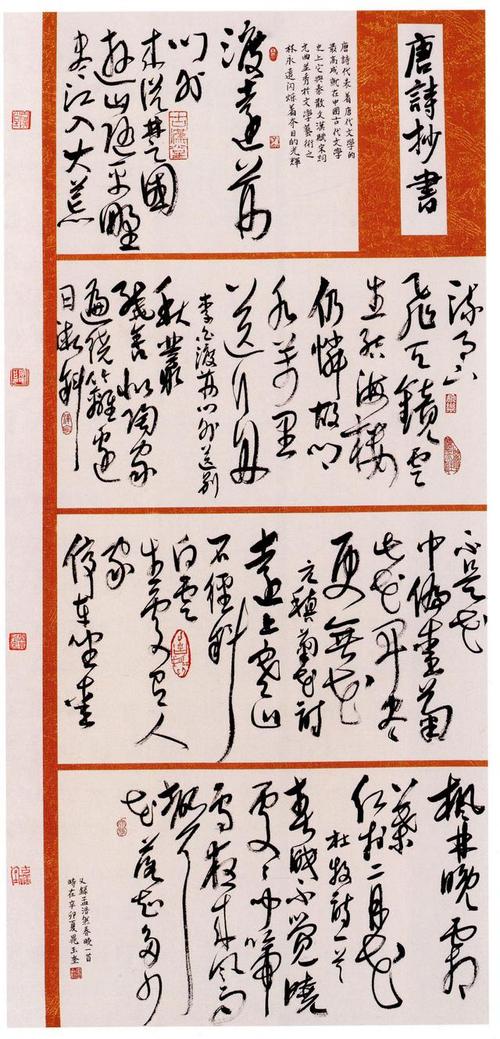 唐詩抄書
唐詩代表着唐代文學的
最高成就在中國古代文學
史上它與秦散文漢賦宋詞
元曲並秀於文學藝術之
林永遠閃爍着今日的光輝
渡遠荊
门外
来從楚國
遊山随平野
盡江入大荒
流月下
飛天鏡雲
生結海樓
仍憐故鄉
水萬里
送行舟
李白渡荊门外送别
秋叢
繞舍似陶家
遍繞籬邊
日漸斜
不是花
中偏愛菊
此花開盡
更無花
元稹菊花詩
遠上寒山
石徑斜
白雲
生處有人
家
停車坐愛
楓林晚霜
葉
红於二月花
杜牧詩一首
春眠不覺曉
處々聞啼
鳥夜来風雨
聲
花落知多少
又録孟浩然春曉一首
時在辛卯夏晁玉奎